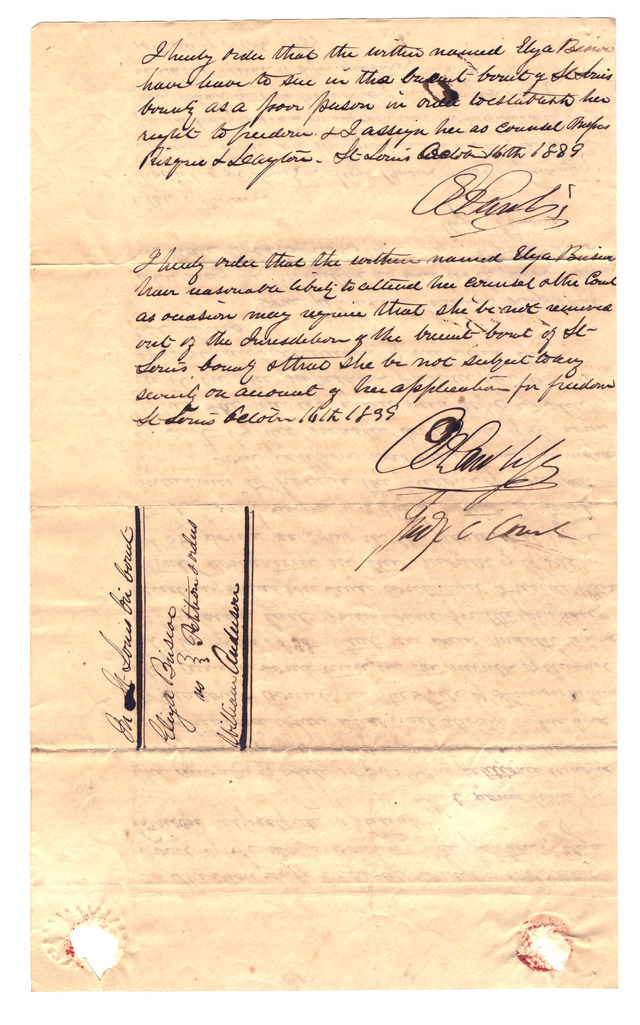 I hereby order that the within named Elyza Briscoe
have leave to sue in the Circuit Court of St Louis
County as a poor person in order to establish her
right to freedom & I assign her as counsel Messrs
Risque & Slayton. St Louis October 16th 1839

I hereby order that the within named Elyza Briscoe
have reasonable liberty to attend her counsel & the Court
as occasion may require that she be not removed
out of the Jurisdiction of the Circuit Court of St
Louis County & that she be not subject to any
severity on account of her application for freedom
St Louis October 16th 1839

Judge C Court
In St Louis Cir Court
Elyza Briscoe
vs Petition & orders
William Anderson